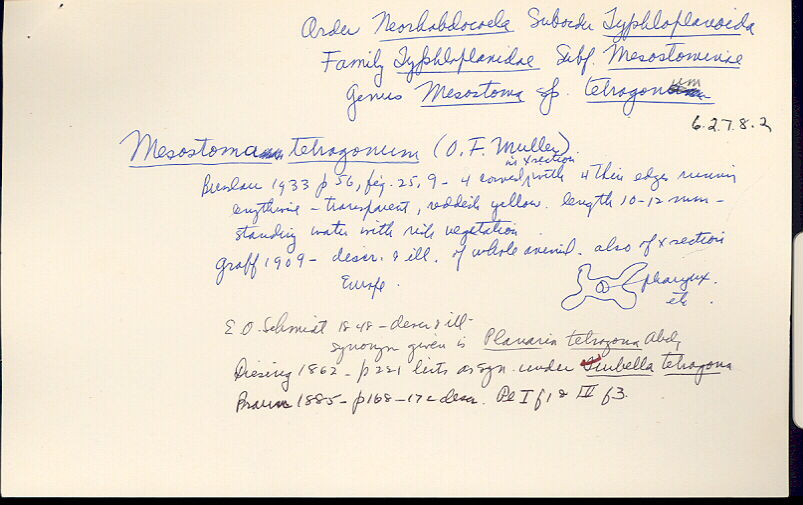 Order Neorhabdocoela Suborder Typhloplanoida
Family Typhloplanidae Subf. Mesostominae
Genus Mesostoma sp. tetragonum
6.27.8.2
Mesostoma tetragonum (O. F. Muller)
in x section
Breslau 1933 p 56, fig. 25, 9 - 4 corned with 4 thin edges running
lengthwise - transparent, reddish yellow. length 10-12 mm -
standing water with rich vegetation.
Graff 1909 - descr. & ill. of whole animal. also of x section
pharynx.
etc.
Europe.
E O. Schmidt 1848 - descr & ill.
synonym given is Planaria tetragona Abdg
Diesing 1862 - p 221 lists as syn. under tetragona
Braun 1885 - p 168-172 descr. Pl I f 1 & IV f 3.